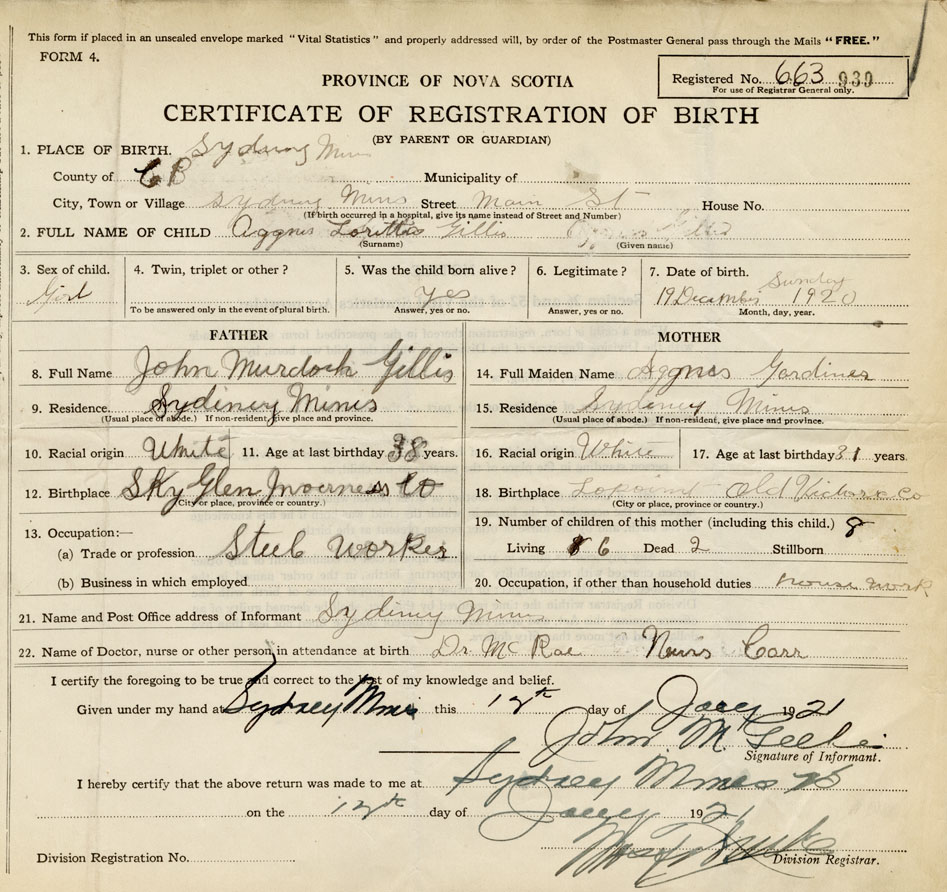 This form if placed in an unsealed envelope marked "Vital Statistics" and properly addressed will, by order of the Postmaster General pass through the Mails "FREE."
FORM 4.
Registered No. 663 930
For use of Registrar General only.
PROVINCE OF NOVA SCOTIA
CERTIFICATE OF REGISTRATION OF BIRTH
(BY PARENT OR GUARDIAN)
1. PLACE OF BIRTH. Sydney Mines
County of CB Municipality of
City, Town or Village Sydney Mines Street Main St House No.
(If birth occurred in a hospital, give its name instead of Street and Number)
2. FULL NAME OF CHILD Aggnes Lorittas Gillis Agnes Gillis
(Surname) (Given name)
3. Sex of child. 4. Twin, triplet or other? 5. Was the child born alive? 6. Legitimate? 7. Date of birth.
Sunday
Girl yes 19 December 1920
To be answered only in the event of plural birth. Answer, yes or no. Answer, yes or no. Month, day, year.
FATHER MOTHER
8. Full Name John Murdock Gillis 14. Full Maiden Name Aggnes Gardiner
9. Residence. Sydiney Mines 15. Residence Sydiney Mines
(Usual place of abode.) If non-resident, give place and province. (Usual place of abode.) If non-resident, give place and province.
10. Racial origin White 11. Age at last birthday 38 years. 16. Racial origin White 17. Age at last birthday 31 years.
12. Birthplace SKy Glen Inverness Co 18. Birthplace Old Victoria Co
(City or place, province or country.) (City or place, province or country.)
13. Occupation:— 19. Number of children of this mother (including this child.) 8
(a) Trade or profession Steel worker Living 6 Dead 2 Stillborn
(b) Business in which employed 20. Occupation, if other than household duties house work
21. Name and Post Office address of Informant Sydiney Mines
22. Name of Doctor, nurse or other person in attendance at birth Dr. McRae Nurs Carr
I certify the foregoing to be true and correct to the best of my knowledge and belief.
Given under my hand at Sydney Mines this 12th day of Jany 1921
John M Gillis
Signature of Informant.
I hereby certify that the above return was made to me at Sydney Mines NS
on the 12th day of Jany 1921
Division Registration No. Division Registrar.